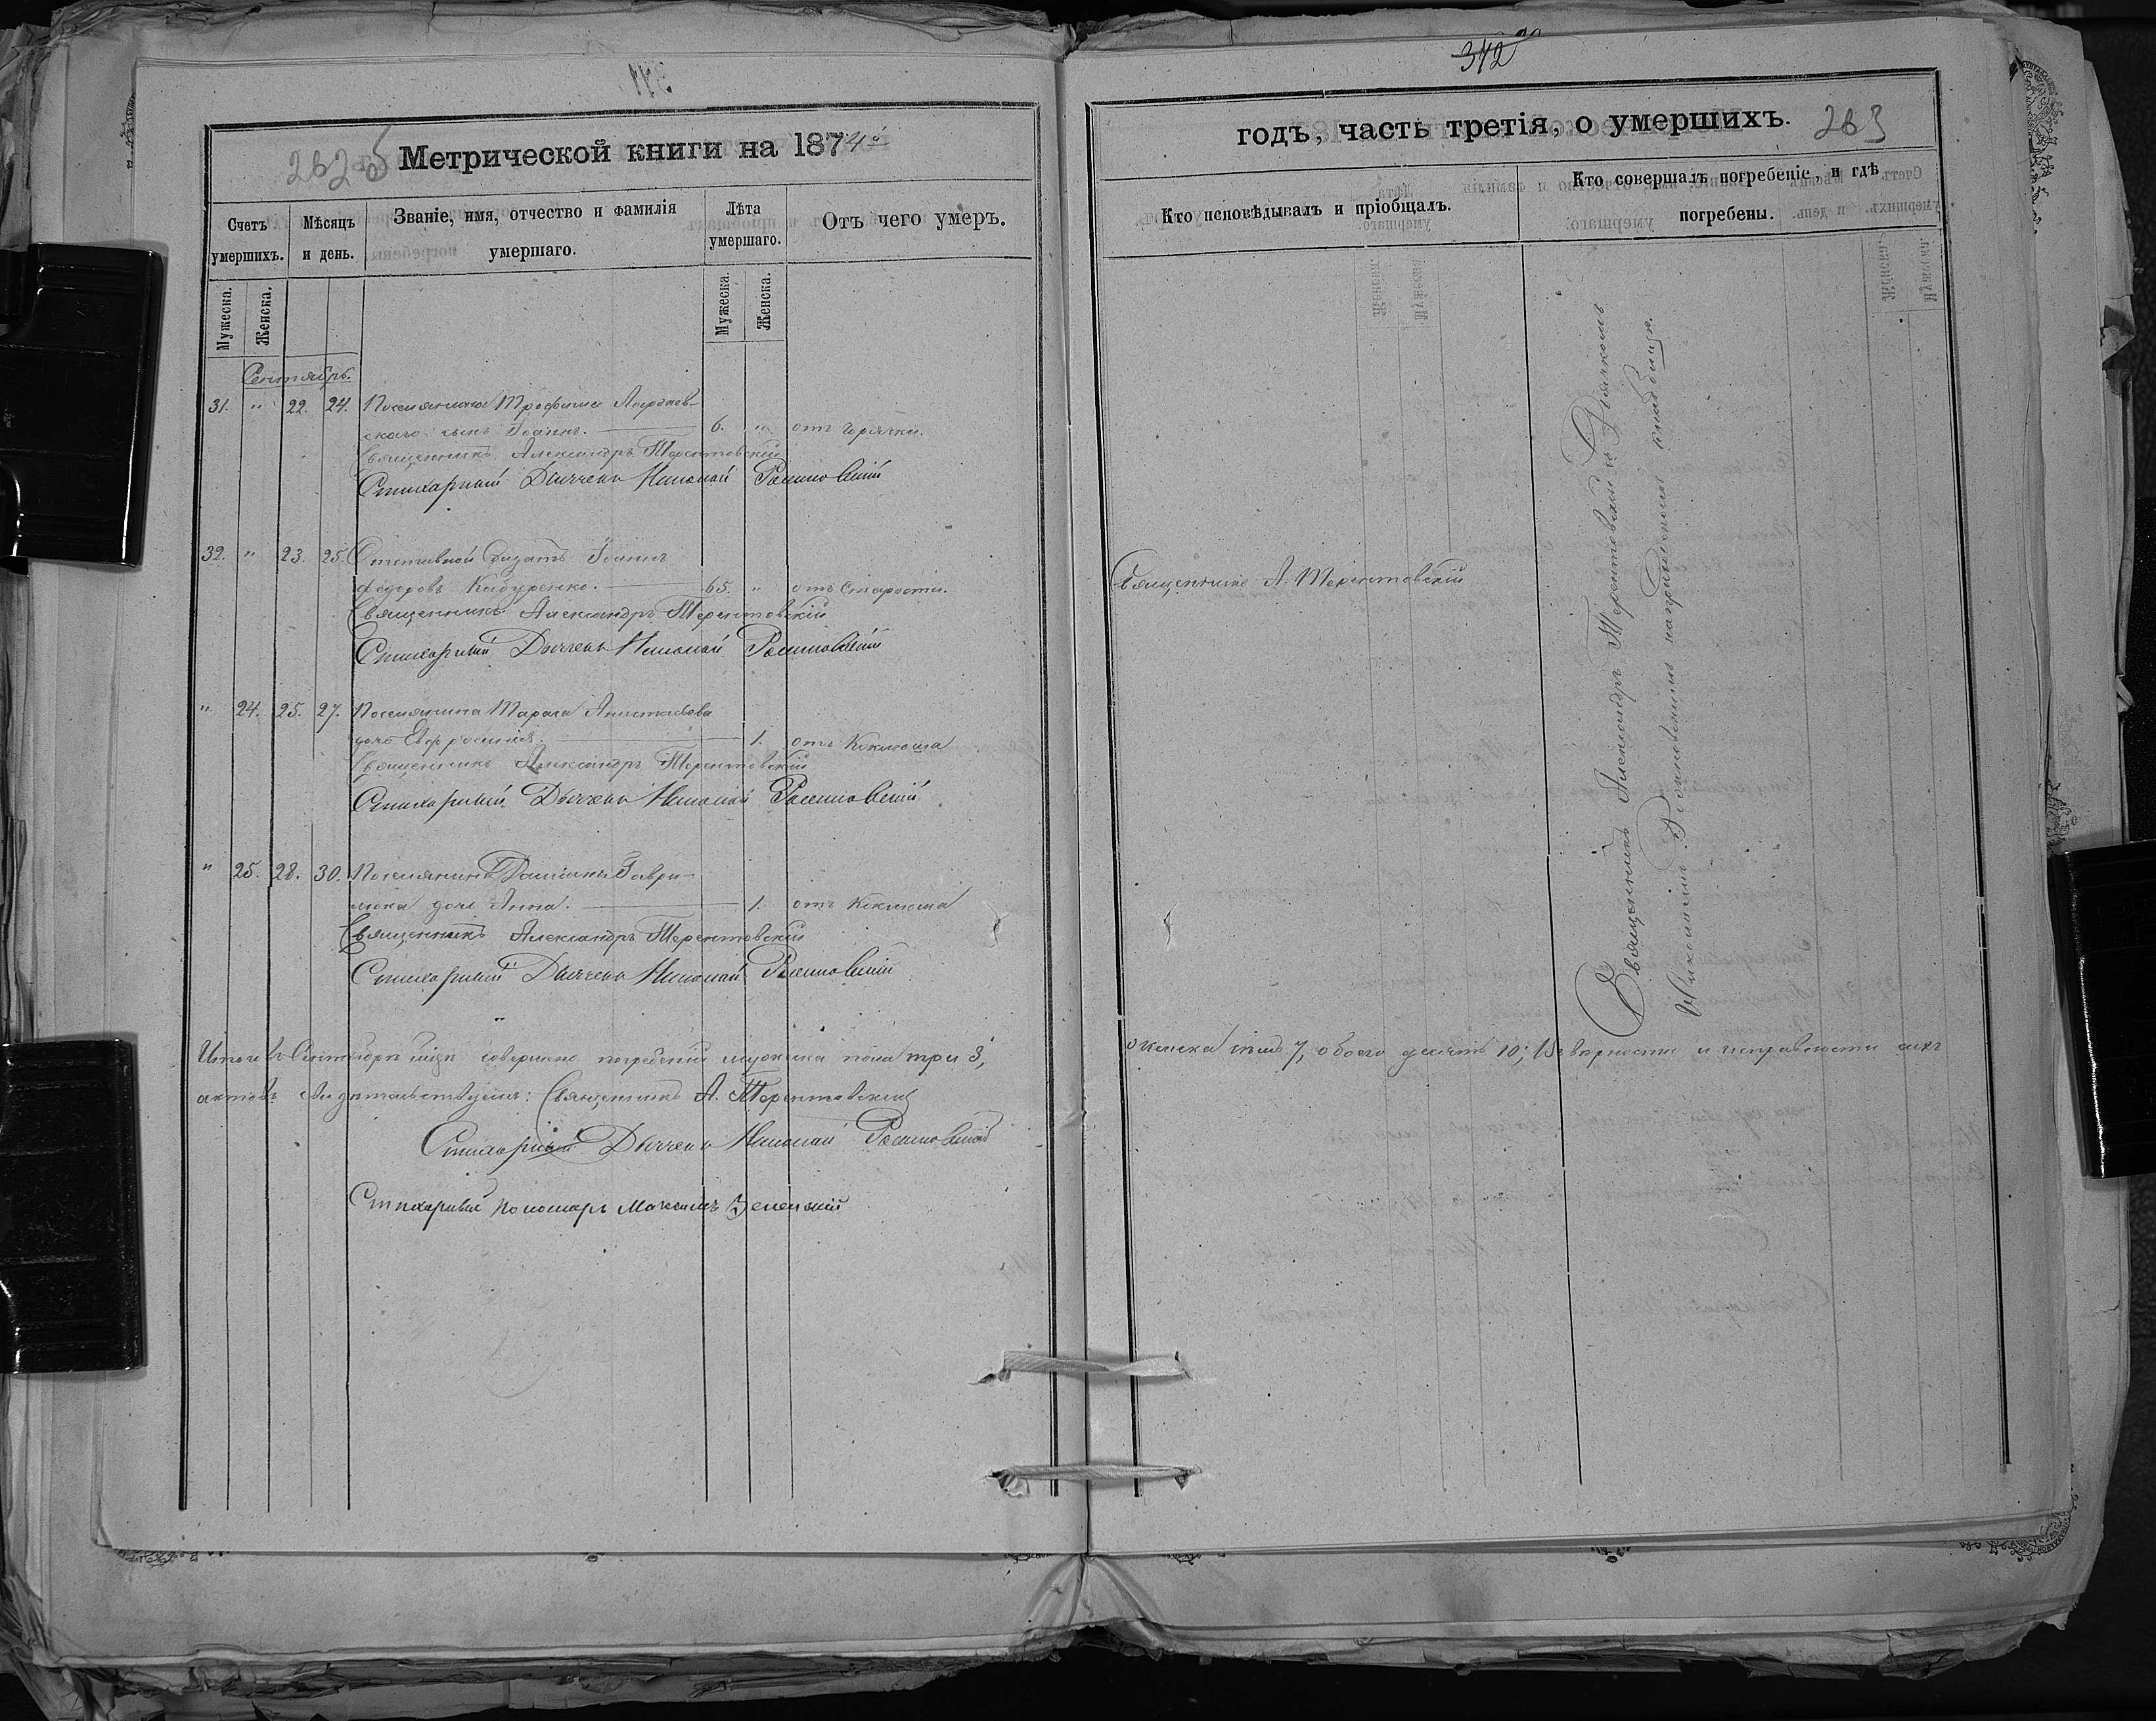 342
Метрической книги на 1874й
Счетъ умершихъ.
Мѣсяцъ и день.
Званіе, имя, отчество и фамилія умершаго.
Лѣта умершаго.
Отъ чего умеръ.
Мужеска.
Женска.
Мужеска.
Женска.
Сентябрь.
31. " 22. 24. Поселянина Трофима
скаго сынъ Іоаннъ. 6. " отъ горячки.
Священникъ Александръ Терентовскій
Стихарный Дьячекъ Николай
32. " 23. 25. Отставной Солдатъ Іоаннъ
Федоровъ Кабуренко. 65. " отъ старости.
Священникъ Александръ Терентовскій
Стихарный Дьячекъ Николай
" 24. 25. 27. Поселянина Тараса
дочь Евфросинія. 1. отъ Коклюша
Священникъ Александръ Терентовскій
Стихарный Дьячекъ Николай
" 25. 28. 30. Поселянина Даміана Гаври-
люка дочь Анна. 1. отъ Коклюша
Священникъ Александръ Терентовскій
Стихарный Дьячекъ Николай
Итого въ Сентябрѣ мцѣ совершено погребеній мужеска пола три 3,
актовъ свидѣтельствуемъ: Священникъ А. Терентовскій
Стихарный Дьячекъ Николай
Стихарный пономарь Максимъ Зеленскій
годъ, часть третія, о умершихъ.
263
Кто исповѣдывалъ и пріобщалъ.
Кто совершалъ погребеніе, и гдѣ погребены.
Священникъ А. Терентовскій
Священникъ Александръ Терентовскій и Дьячкомъ
Николаемъ на приходскомъ кладбищѣ.
а женска семь 7, обоего десять 10; Въ вѣрности и исправности сихъ